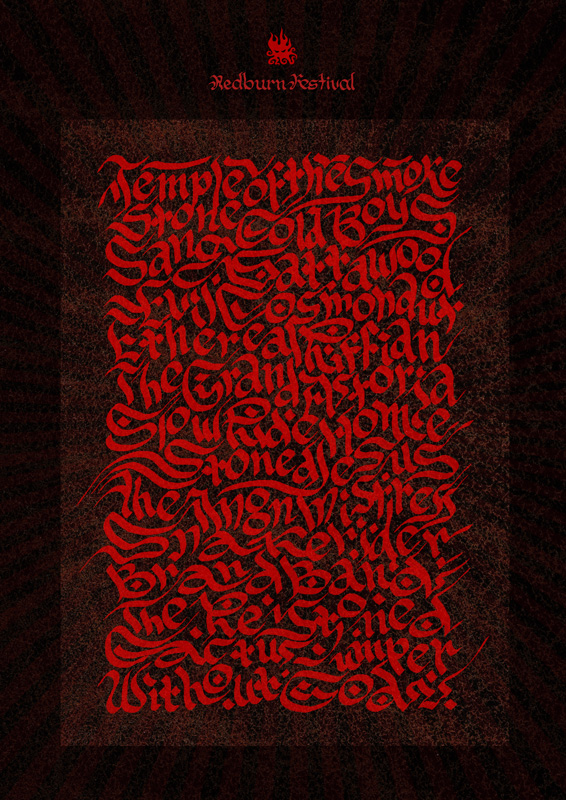 Redburn Festival
Temple of the Smoke
Stone Cold Boys
Sang Sattawood
Cosmonaut
Ethereal Riffian
The Grand Astoria
Slow Ride Home
Stoned Jesus
The Mistress
Snakerider
Brand Band
The Re-Stoned
Cactus Jumper
Without God